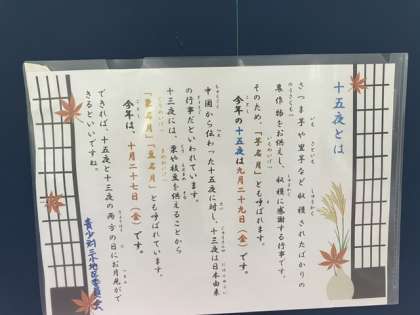 十五夜とは
さつま芋や里芋など収穫されたばかりの
農作物をお供えし、収穫に感謝する行事です。
そのため、「芋名月」とも呼ばれます。
今年の十五夜は九月二十九日（金）です。
中国から伝わった十五夜に対し、十三夜は日本由来
の行事だといわれています。
十三夜には、栗や枝豆を供えることから
「栗名月」「豆名月」とも呼ばれています。
今年は、十月二十七日（金）です。
できれば、十五夜と十三夜の両方の日にお月見がで
きるといいですね。
青少対三小地区委員会